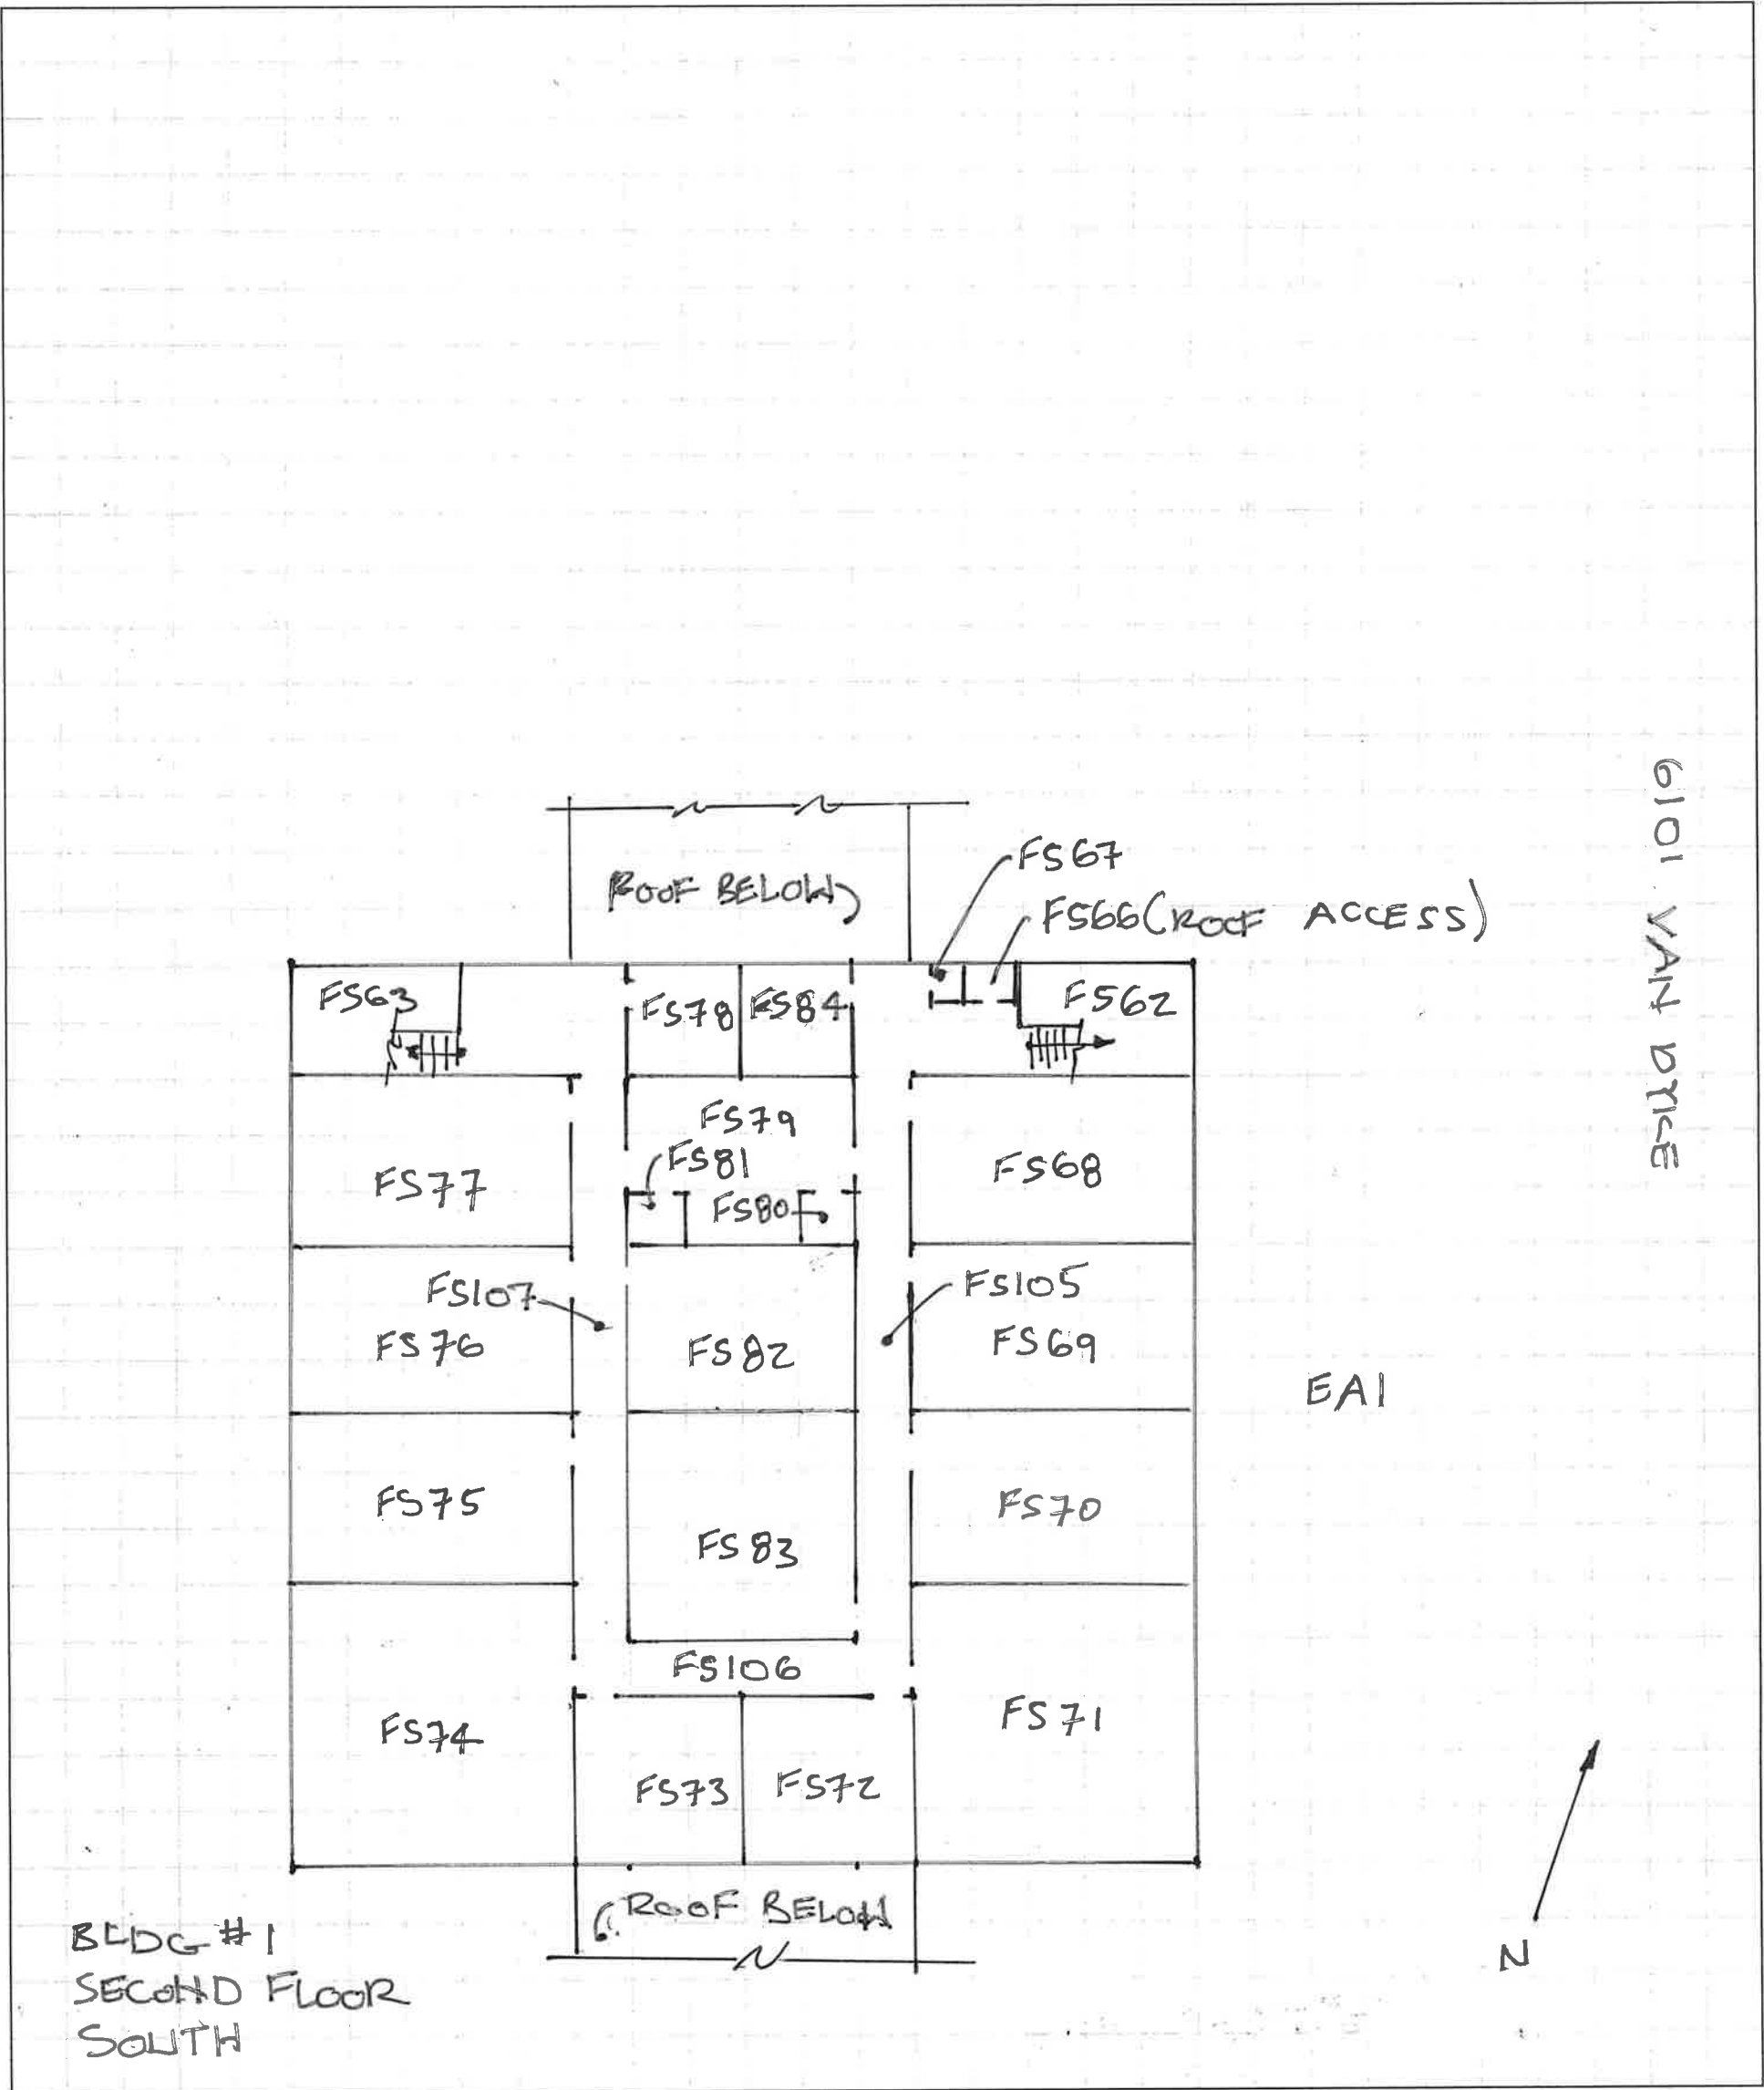 6101 VAN DYKE
FS67
ROOF BELOW
FS66 (ROOF ACCESS)
FS63
FS78
FS84
FS62
FS79
FS81
FS77
FS80
FS68
FS107
FS105
FS76
FS82
FS69
EA1
FS75
FS70
FS83
FS106
FS74
FS71
FS73
FS72
ROOF BELOW
BLDG #1
SECOND FLOOR
SOUTH
N